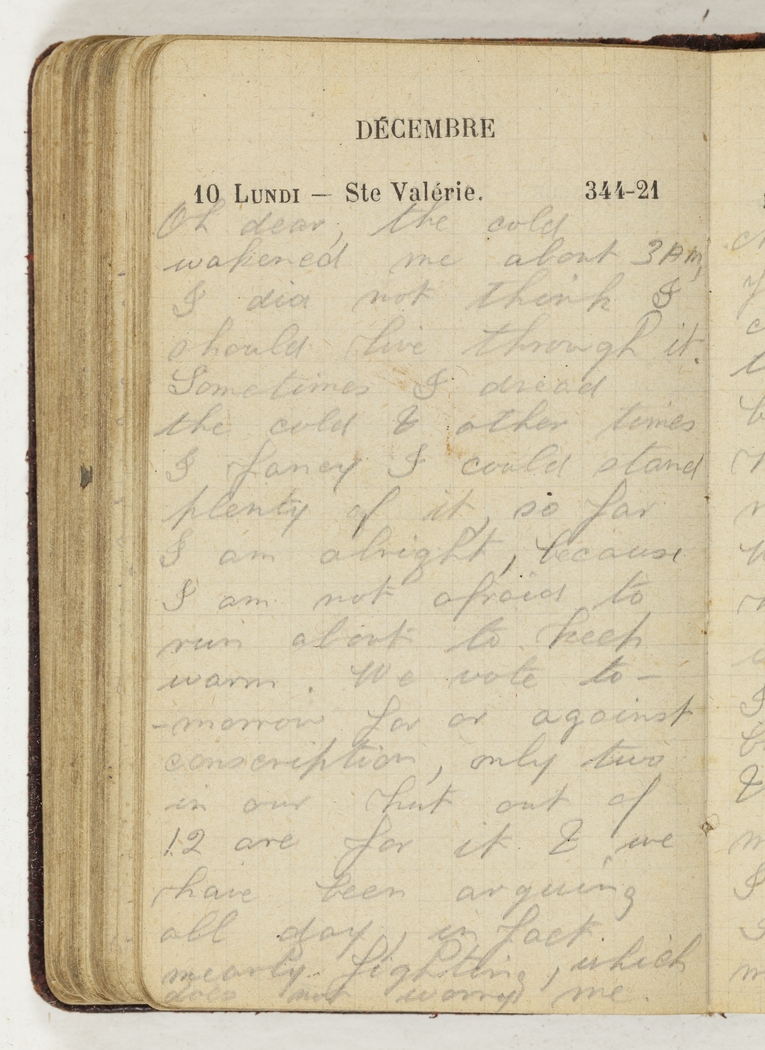 DÉCEMBRE
10 LUNDI — Ste Valérie. 344-21
Oh dear, the cold
wakened me about 3 AM,
I did not think I
should live through it.
Sometimes I dread
the cold & other times
I fancy I could stand
plenty of it, so far
I am alright, because
I am not afraid to
run about to keep
warm. We vote to-
-morrow for or against
conscription, only two
in our hut out of
12 are for it & we
have been arguing
all day, in fact
nearly fighting, which
does not worry me.